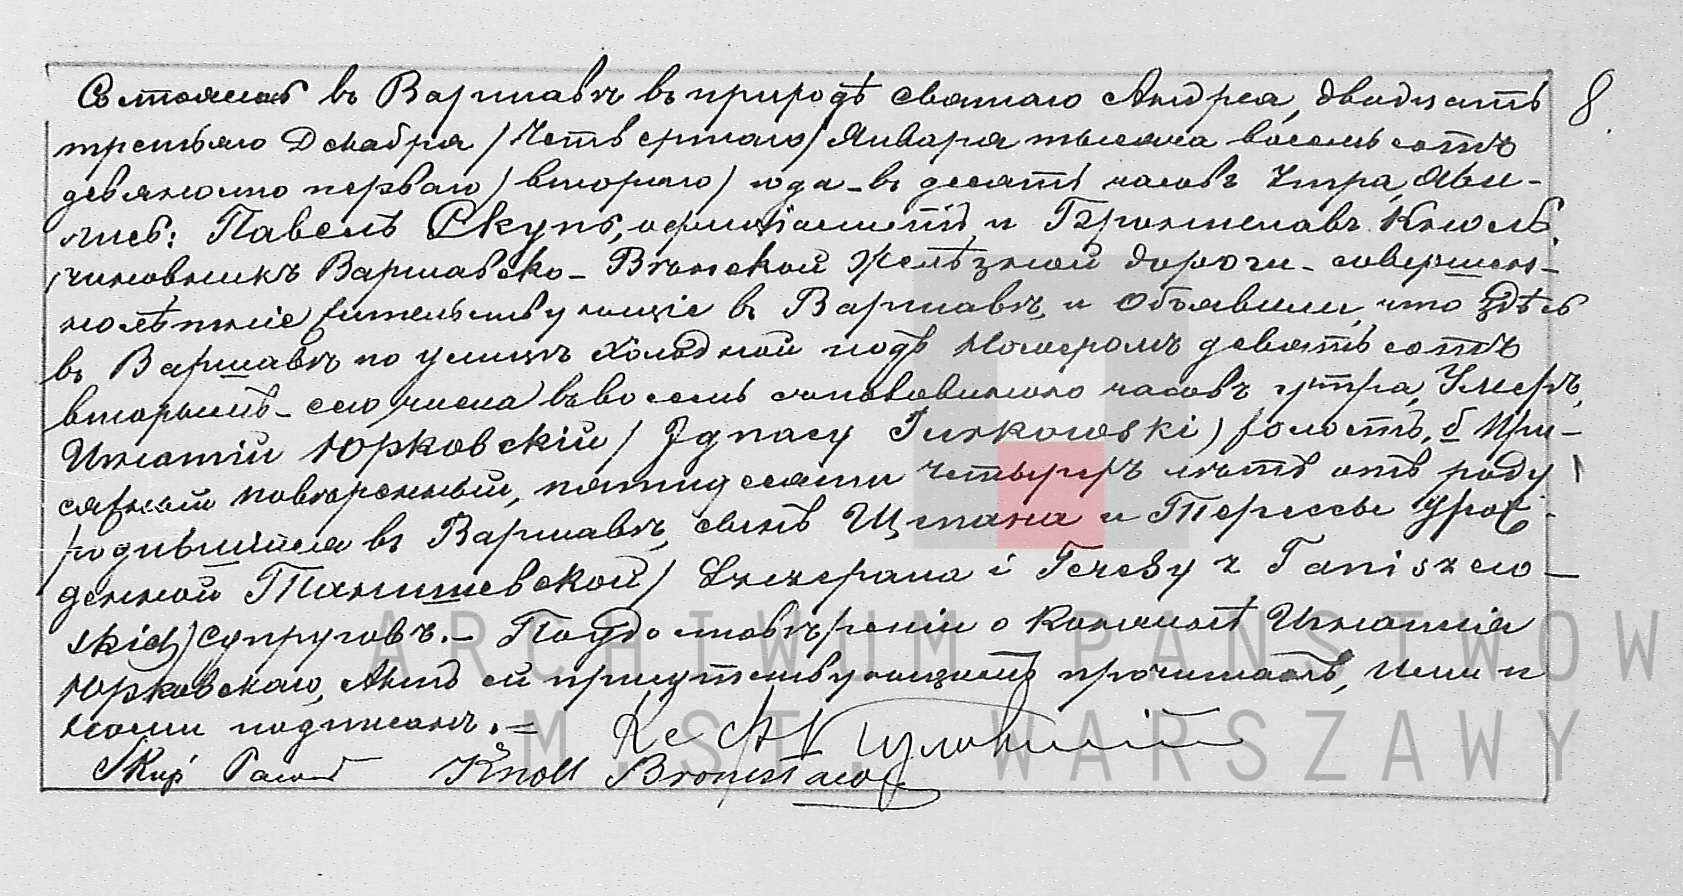 Состоялось въ Варшавѣ въ приходѣ святаго Андрея, двадцать 8.
третьяго Декабря / Четвертаго / Января тысяча восемьсотъ
девяносто перваго / втораго / года въ десять часовъ утра, Яви-
лись: Павелъ Скупь, и Брониславъ Кнолъ,
чиновникъ Варшавско-Вѣнской Желѣзной дороги совершен-
нолѣтніе жительствующіе въ Варшавѣ, и объявили, что здѣсь
въ Варшавѣ по улицѣ Холодной подъ Номеромъ девятьсотъ
вторымъ сего числа въ восемь съ половиною часовъ утра, Умеръ,
Игнатій Юрковскій / Ignacy Jurkowski) холостъ, б. При-
сяжный повѣренный, пятидесяти четырехъ лѣтъ отъ роду
родившійся въ Варшавѣ, сынъ Щепана и Терессы урож-
денной Танишевской / Szczepana i Teresy z Taniszew-
skich) супруговъ.- По удостовѣреніи о кончинѣ Игнатія
Юрковскаго, Актъ сей присутствующимъ прочитанъ, ими и
нами подписанъ.=
Skup Paweł Knoll Bronisław
ARCHIWUM PAŃSTWOW
M. ST. WARSZAWY